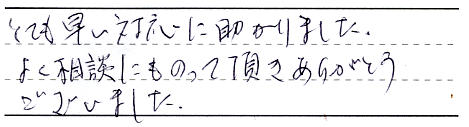 とても早い対応に助かりました。
よく相談にものって頂きありがとう
ございました。